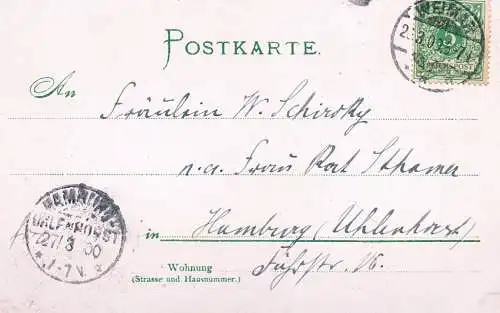 WEIMAR
POSTKARTE.
REICHSPOST
An
Fräulein W. Schirsky
Frau Rat Sthamer
HAMBURG
UHLENHORST
27/3 00
*1-7V.*
in Hamburg (Uhlenhorst)
Wohnung
(Strasse und Hausnummer.)
Fährstr. 16.